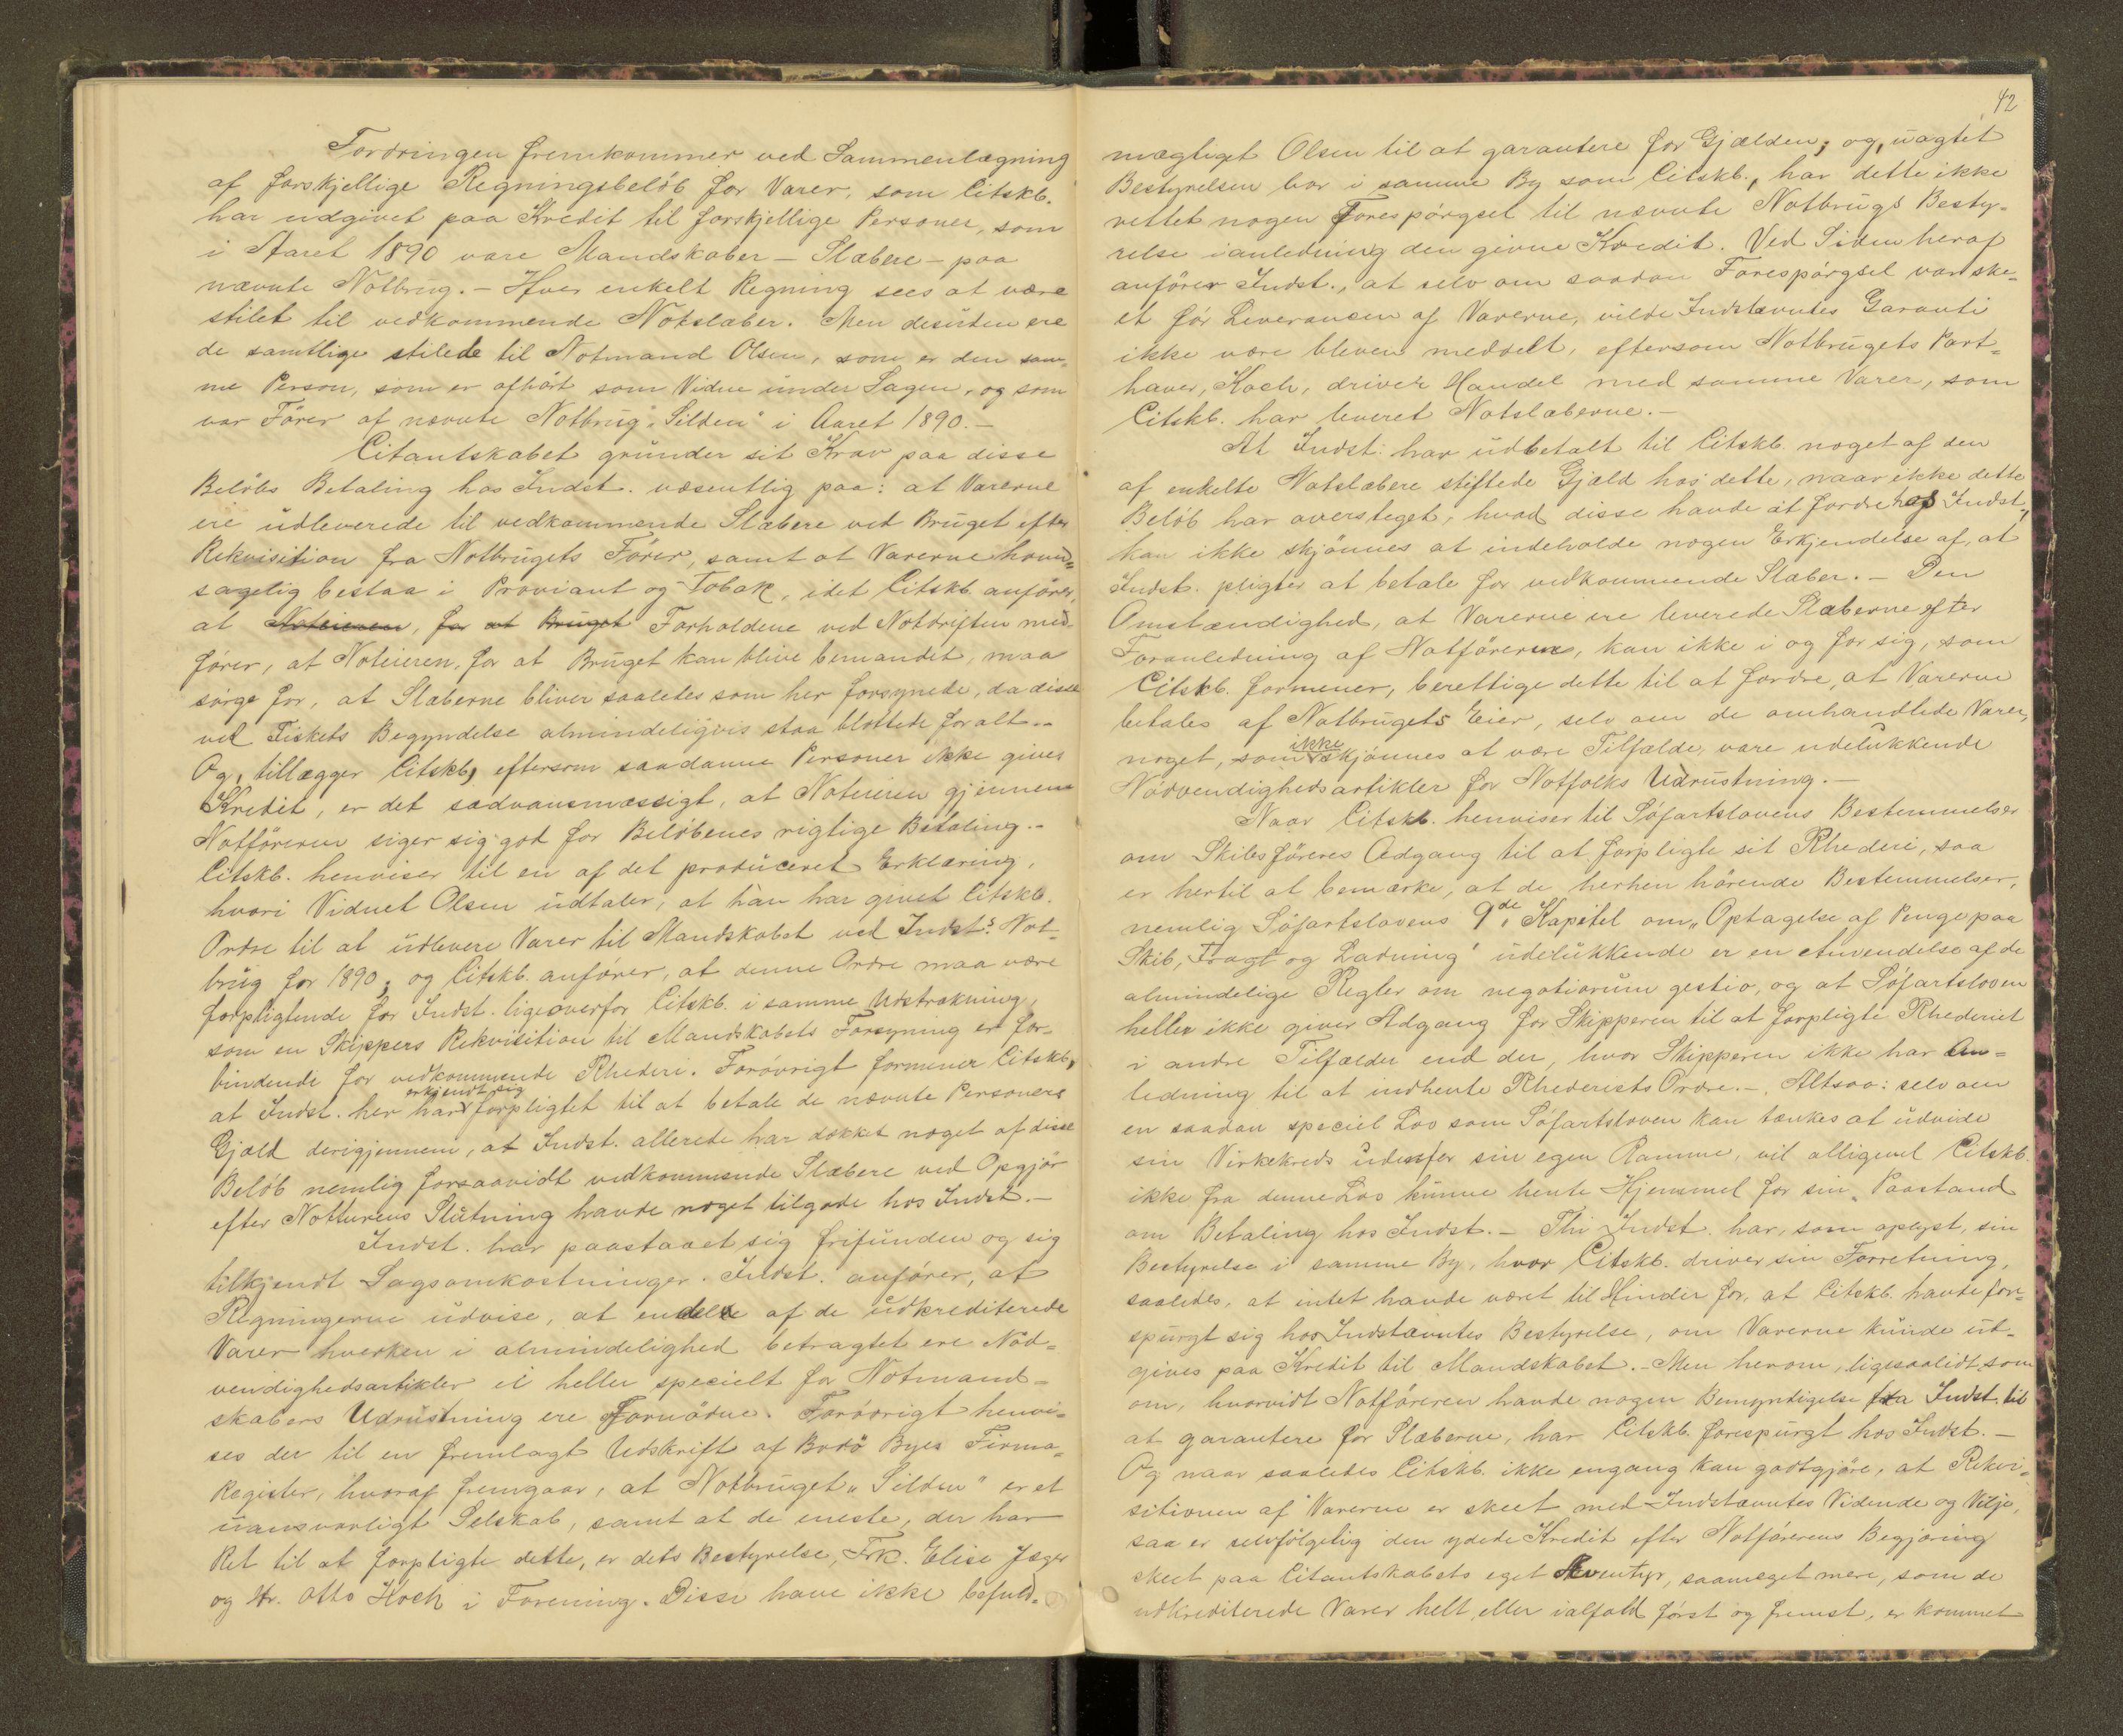 Fordringen fremkommer ved Sammenlægning
af forskjellige Regningsbeløb for Varer, som Citskb.
har udgivet paa Kredit til forskjellige Personer, som
i Aaret 1890 vare Mandskaber – Slæbere – paa
nævnte Notbrug. – Hver enkelt Regning sees at være
stilet til vedkommende Notslæber. Men desuden ere
de samtlige stilede til Notmand Olsen, som er den sam-
me Person, som er afhørt som Vidne under Sagen, og som
var Fører af nævnte Notbrug "Silden" i Aaret 1890. –
Citantskabet grunder sit Krav paa disse
Beløbs Betaling hos Indst. væsentlig paa: at Varerne
ere udleverede til vedkommende Slæbere ved Bruget efter
Rekvisition fra Notbrugets Fører, samt at Varerne hoved-
sagelig bestaa i Proviant og Tobak, idet Citskb. anfører,
at Noteieren, for at Bruget Forholdene ved Notdriften med-
fører, at Noteieren, for at Bruget kan blive bemandet, maa
sørge for, at Slæberne bliver saaledes som her forsynede, da disse
ved Fiskets Begyndelse almindeligvis staa blottede for alt. –
Og, tillægger Citskb, eftersom saadanne Personer ikke gives
Kredit, er det sædvansmæssigt, at Noteieren gjennem
Notføreren siger sig god for Beløbenes rigtige Betaling. –
Citskb. henviser til en af det produceret Erklæring,
hvori Vidnet Olsen udtaler, at han har givet Citskb.
Ordre til at udlevere Varer til Mandskabet ved Indst.s Not-
brug for 1890; og Citskb. anfører, at denne Ordre maa være
forpligtende for Indst. ligeoverfor Citskb. i samme Udstrækning,
som en Skippers Rekvisition til Mandskabets Forsyning er for-
bindende for vedkommende Rhederi. Forøvrigt formener Citskb,
at Indst. her har erkjendt sig forpligtet til at betale de nævnte Personers
Gjæld derigjennem, at Indst. allerede har dækket noget af disse
Beløb nemlig forsaavidt vedkommende Slæbere ved Opgjør
efter Notturens Slutning havde noget tilgode hos Indst. –
Indst. har paastaaet sig frifunden og sig
tilkjendt Sagsomkostninger. Indst. anfører, at
Regningerne udvise, at endele af de udkrediterede
Varer hverken i almindelighed betragtet ere Nød-
vendighedsartikler ei heller specielt for Notmand-
skabers Udrustning ere Fornødne. Forøvrigt henvi-
ses der til en fremlagt Udskrift af Bodø Byes Firma-
Register, hvoraf fremgaar, at Notbruget "Silden" er et
uansvarligt Selskab, samt at de eneste, der har
Ret til at forpligte dette, er dets Bestyrelse, Frk. Elise Jæger
og Hr. Otto Koch i Forening. Disse have ikke befuld-
42
mægtiget Olsen til at garantere for Gjælden; og, uagtet
Bestyrelsen bor i samme By som Citskb., har dette ikke
rettet nogen Forespørgsel til nævnte Notbrugs Besty-
relse i anledning den givne Kredit. Ved Siden heraf
anfører Indst., at selv om saadan Forespørgsel var ske-
et før Leverancen af Varerne, vilde Indstævntes Garanti
ikke være bleven meddelt, eftersom Notbrugets Part-
haver, Koch, driver Handel med samme Varer, som
Citskb. har leveret Notslæberne. –
At Indst. har udbetalt til Citskb. noget af den
af enkelte Notslæbere stiftede Gjæld hos dette, naar ikke dette
Beløb har oversteget, hvad disse havde at fordre hos Indst.,
kan ikke skjønnes at indeholde nogen Erkjendelse af, at
Indst. pligter at betale for vedkommende Slæber. – Den
Omstændighed, at Varerne ere leverede Slæberne efter
Foranledning af Notføreren, kan ikke i og for sig, som
Citskb. formener, berettige dette til at fordre, at Varerne
betales af Notbrugets Eier, selv om de omhandlede Varer,
noget, som ikke skjønnes at være Tilfælde, vare udelukkende
Nødvendighedsartikler for Notfolks Udrustning. –
Naar Citskb. henviser til Søfartslovens Bestemmelser
om Skibsføreres Adgang til at forpligte sit Rhederi, saa
er hertil at bemærke, at de herhen hørende Bestemmelser,
nemlig Søfartslovens 9de Kapitel om "Optagelse af Penge paa
Skib, Fragt og Ladning" udelukkende er en Anvendelse af de
almindelige Regler om negotiorum gestio, og at Søfartsloven
heller ikke giver Adgang for Skipperen til at forpligte Rhederiet
i andre Tilfælder end der, hvor Skipperen ikke har An-
ledning til at indhente Rhederiets Ordre. – Altsaa: selv om
en saadan speciel Lov som Søfartsloven kan tænkes at udvide
sin Virkekreds udenfor sin egen Ramme, vil alligevel Citskb.
ikke fra denne Lov kunne hente Hjemmel for sin Paastand
om Betaling hos Indst. – Thi Indst. har, som oplyst, sin
Bestyrelse i samme By, hvor Citskb. driver sin Forretning,
saaledes, at intet havde været til Hinder for, at Citskb. havde for-
spurgt sig hos Indstævntes Bestyrelse, om Varerne kunde ud-
gives paa Kredit til Mandskabet. – Men herom, ligesaalidt som
om, hvorvidt Notføreren havde nogen Bemyndigelse fra Indst. til
at garantere for Slæberne, har Citskb. forespurgt hos Indst. –
Og naar saaledes Citskb. ikke engang kan godtgjøre, at Rekvi-
sitionen af Varerne er skeet med Indstævntes Vidende og Vilje,
saa er selvfølgelig den ydede Kredit efter Notførerens Begjæring
skeet paa Citantskabets eget Æventyr, saameget mere, som de
udkrediterede Varer helt, eller ialfald først og fremst, er kommet